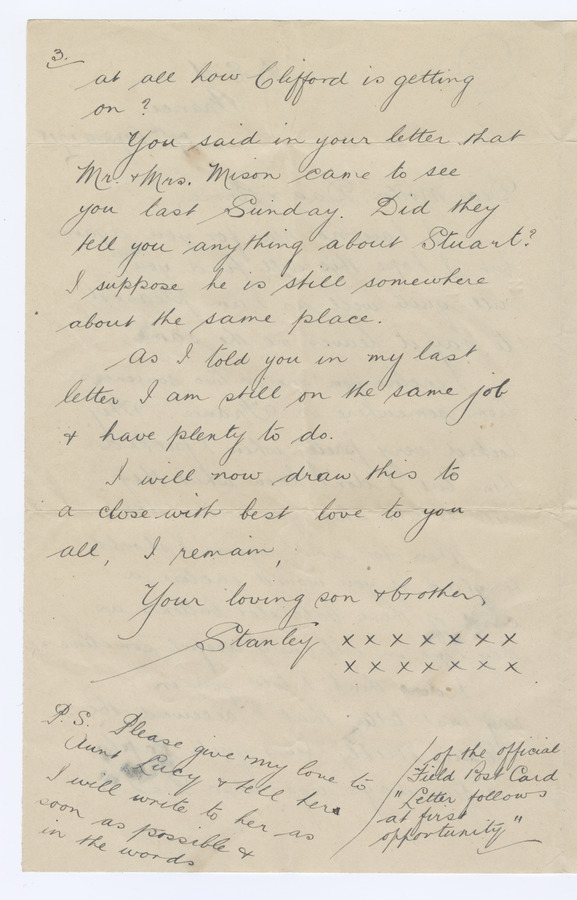 3.
at all how Clifford is getting
on?
You said in your letter that
Mr. & Mrs. Mison came to see
you last Sunday. Did they
tell you anything about Stuart?
I suppose he is still somewhere
about the same place.
As I told you in my last
letter I am still on the same job
& have plenty to do.
I will now draw this to
a close with best love to you
all, I remain,
Your loving son & brother,
Stanley x x x x x x x
x x x x x x x
P.S. Please give my love to
Aunt Lucy & tell her
I will write to her as
soon as possible &
in the words
of the official
Field Post Card
"Letter follows
at first
opportunity"